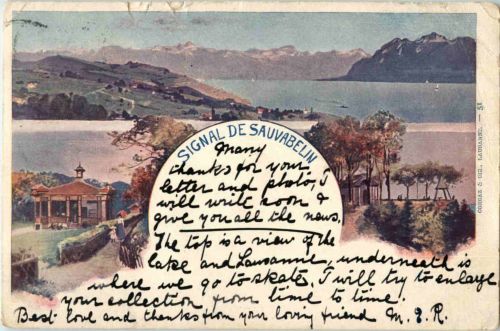 SIGNAL DE SAUVABELIN
Many
thanks for your
letter and photo, I
will write soon &
give you all the news.
The top is a view of the
lake and Lausanne, underneath is
where we go to skate, I will try to enlarge
your collection from time to time.
Best love and thanks from your loving friend M. E. R.
CORBAZ & CIE., LAUSANNE. — 51